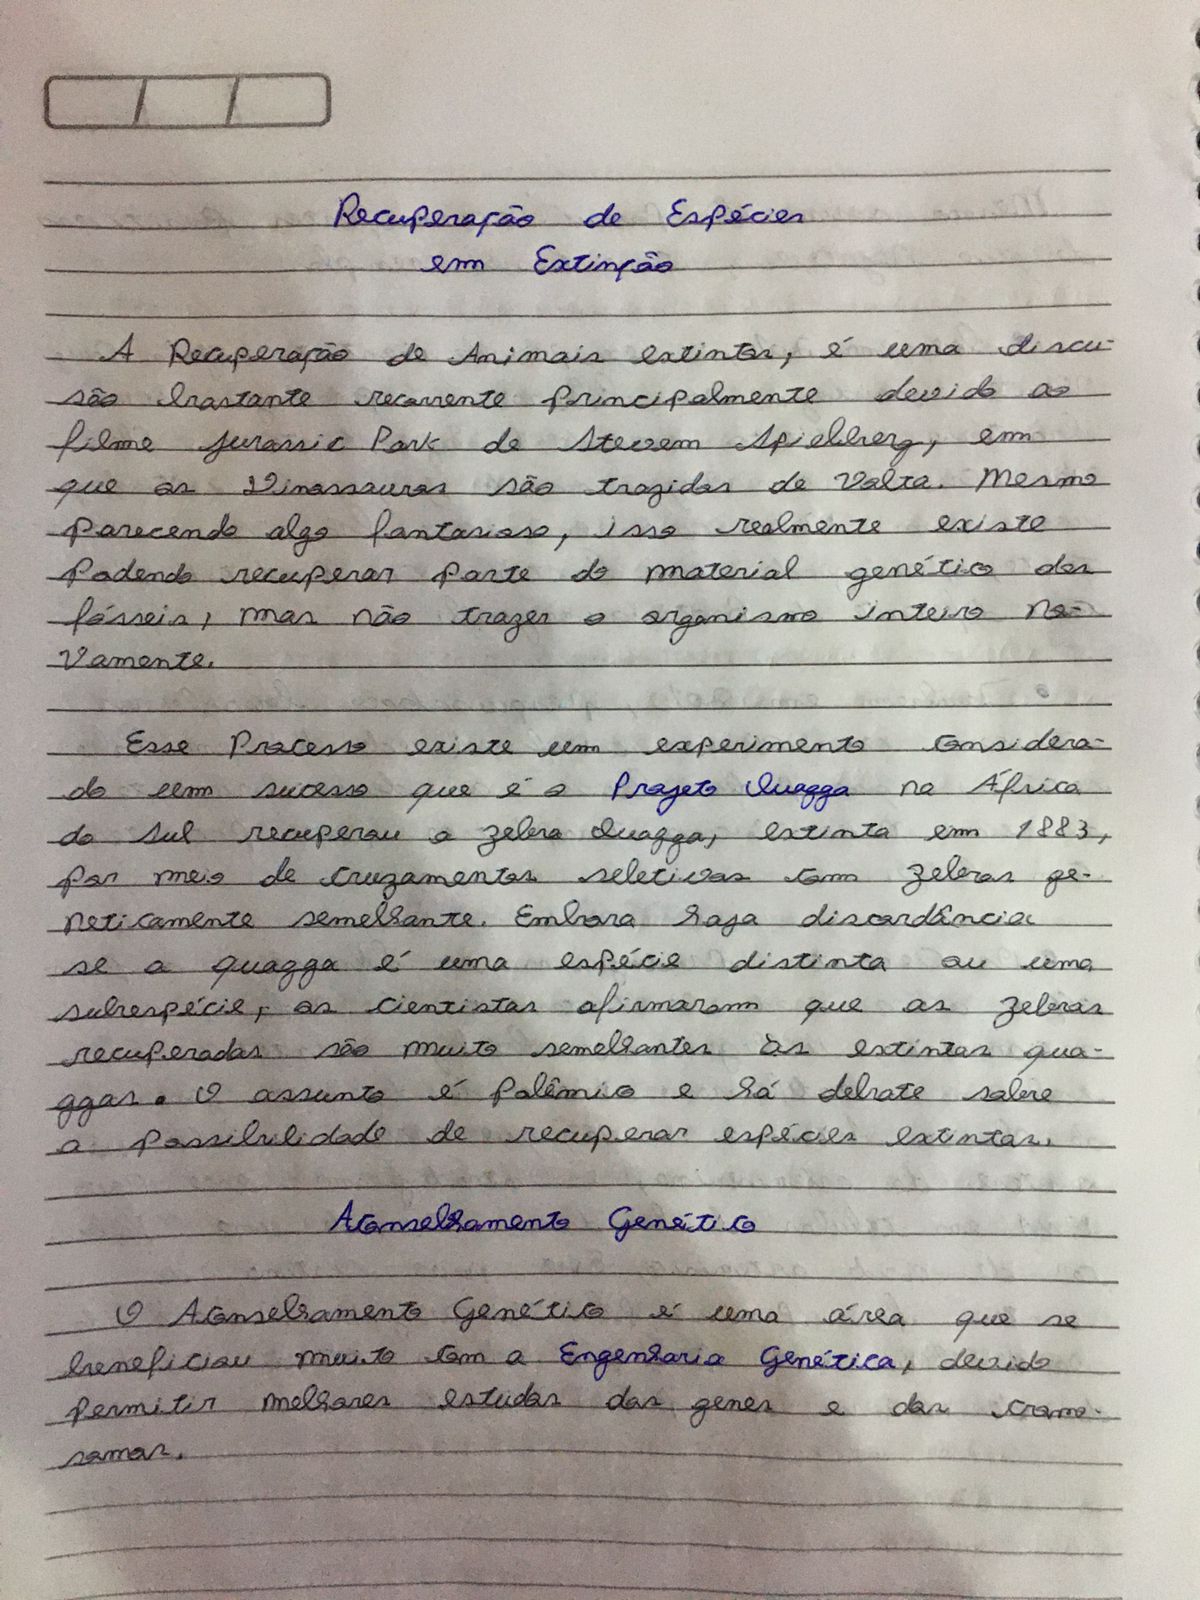 Recuperação de Espécies
em Extinção
A Recuperação de Animais extintos, é uma discu-
são bastante recorrente principalmente devido ao
filme Jurassic Park de Stevem Spielberg, em
que os Dinossauros são trazidos de Volta. Mesmo
parecendo algo fantasioso, isso realmente existe
Podendo recuperar parte do material genético dos
fósseis, mas não trazer o organismo inteiro no-
vamente.
Esse Processo existe um experimento considera-
do um sucesso que é o Projeto Quagga na África
do Sul recuperou a zebra Quagga, extinta em 1883,
por meio de cruzamentos seletivos com zebras ge-
neticamente semelhante. Embora haja discordância
se a quagga é uma espécie distinta ou uma
subespécie, os cientistas afirmaram que as zebras
recuperadas são muito semelhantes às extintas qua-
ggas. O assunto é Polêmico e há debate sobre
a possibilidade de recuperar espécies extintas.
Aconselhamento Genético
O Aconselhamento Genético é uma área que se
beneficiou muito com a Engenharia Genética, devido
permitir melhores estudos dos genes e dos cromo-
somos.